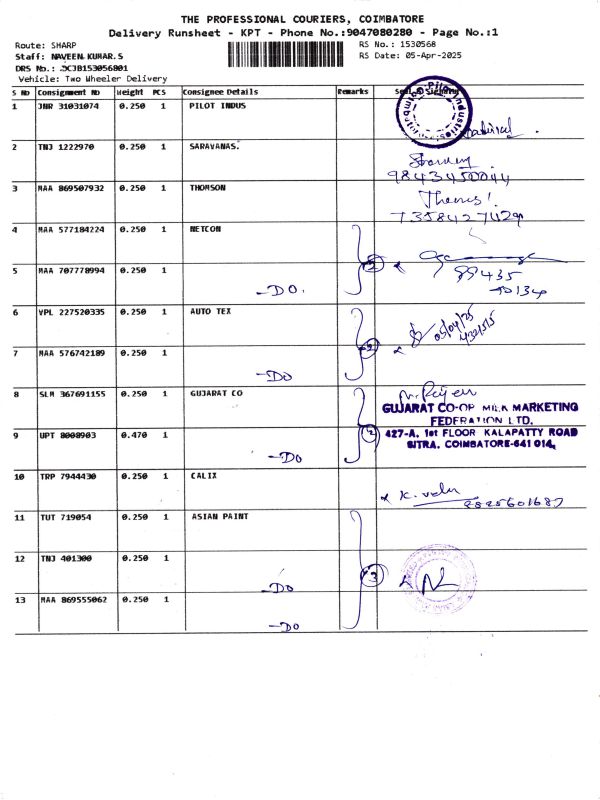 THE PROFESSIONAL COURIERS, COIMBATORE
Delivery Runsheet - KPT - Phone No.:9047080280 - Page No.:1
Route: SHARP RS No.: 1530568
Staff: NAVEEN KUMAR.S RS Date: 05-Apr-2025
DRS No.: DCJB153056801
Vehicle: Two Wheeler Delivery
S No Consignment No Weight PCS Consignee Details Remarks Seal & Signature
1 JNR 31031074 0.250 1 PILOT INDUS
Pilot Industries
2 TNJ 1222970 0.250 1 SARAVANAS.
9843450044
3 MAA 869507932 0.250 1 THOMSON
7358427429
4 MAA 577184224 0.250 1 NETCON
5 MAA 707778994 0.250 1 2
99435
-DO. 70134
6 VPL 227520335 0.250 1 AUTO TEX
05/04/25
7 MAA 576742189 0.250 1 2
-DO
8 SLM 367691155 0.250 1 GUJARAT CO
GUJARAT CO-OP MILK MARKETING
FEDERATION LTD.
9 UPT 8008903 0.470 1 2 427-A, 1st FLOOR KALAPATTY ROAD
SITRA. COIMBATORE-641 014.
-DO
10 TRP 7944430 0.250 1 CALIX
K. velu
11 TUT 719054 0.250 1 ASIAN PAINT
12 TNJ 401300 0.250 1 3
-DO
13 MAA 869555062 0.250 1
-DO